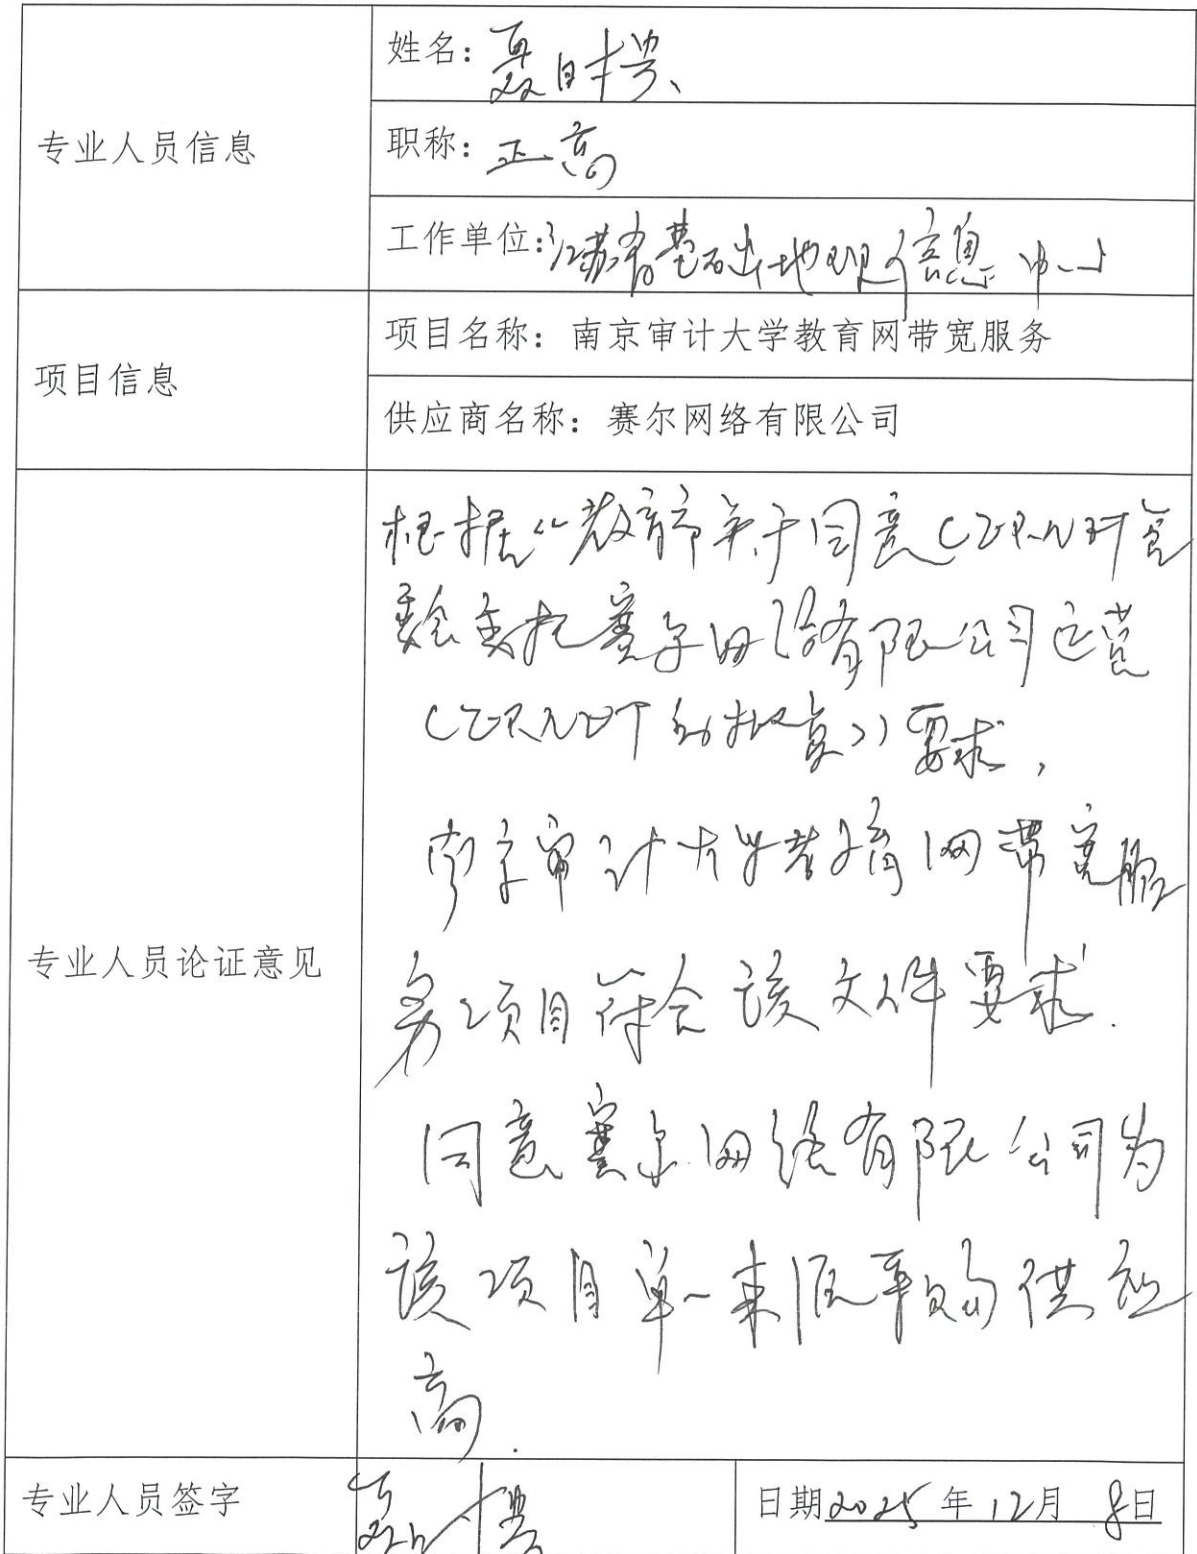 专业人员信息
姓名：聂时贵
职称：正高
工作单位：江苏省基础地理信息中心
项目信息
项目名称：南京审计大学教育网带宽服务
供应商名称：赛尔网络有限公司
专业人员论证意见
根据《教育部关于同意CERNET管
委会委托赛尔网络有限公司运营
CERNET的批复》要求，
南京审计大学教育网带宽服
务项目符合该文件要求.
同意赛尔网络有限公司为
该项目单一来源采购供应
商.
专业人员签字
聂时贵
日期2025年12月8日